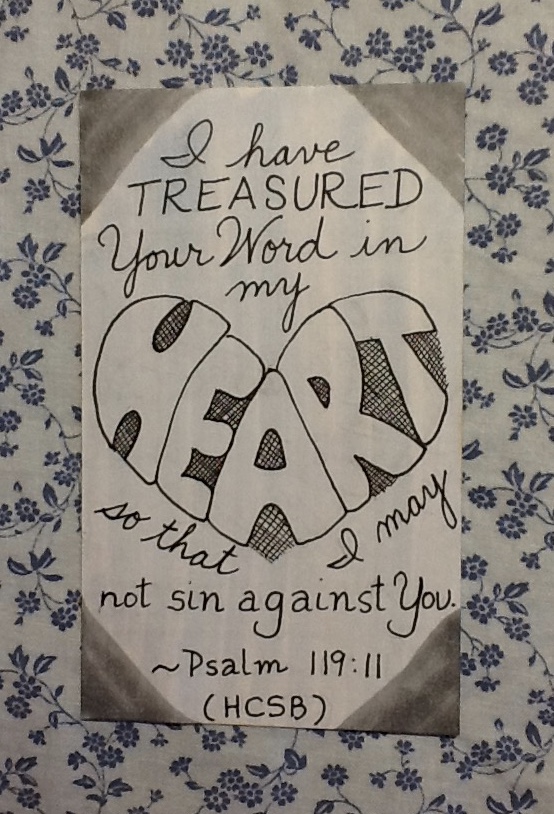 I have
TREASURED
Your Word in
my
HEART
so that I may
not sin against You.
~Psalm 119:11
(HCSB)